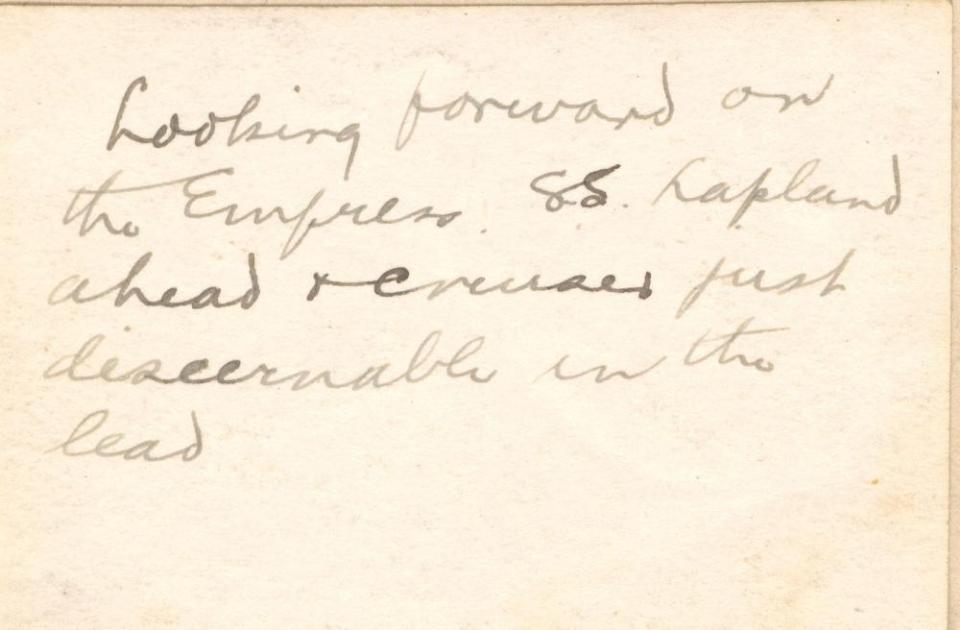 Looking forward on
the Empress. SS. Lapland
ahead & cruiser just
discernable in the
lead